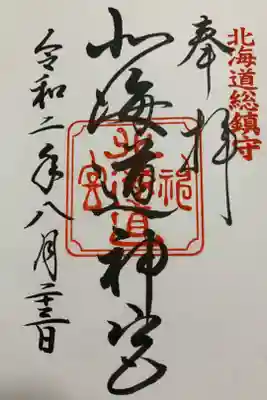 北海道総鎮守
奉拝
北海道神宮
令和二年八月二十三日